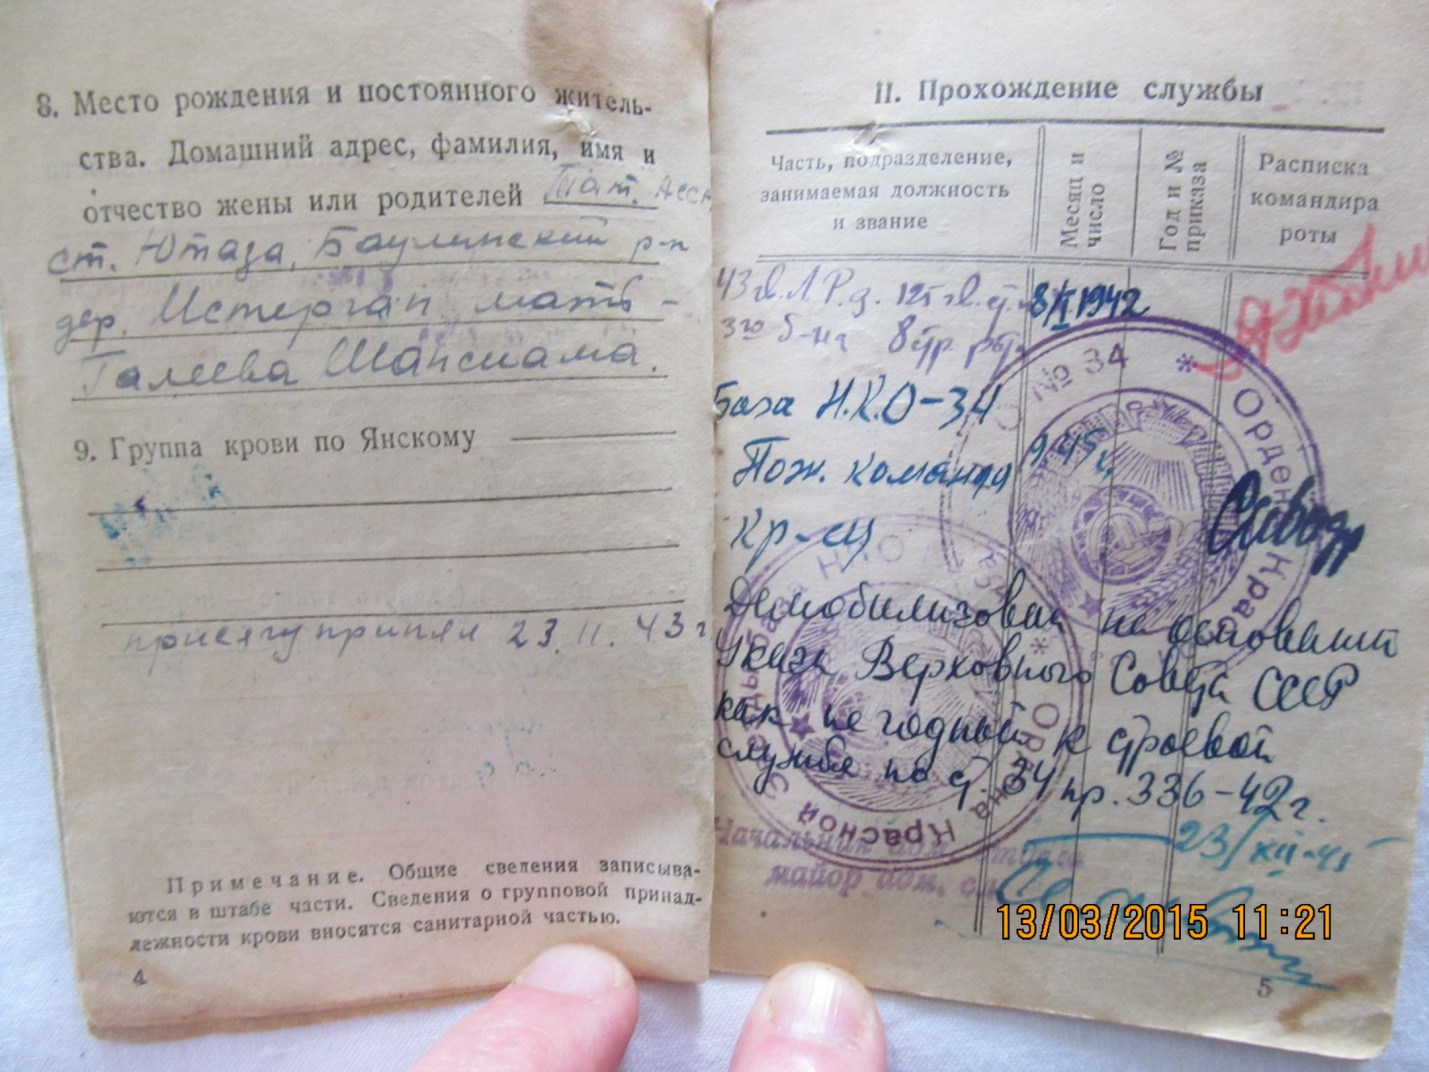 8. Место рождения и постоянного житель-
ства. Домашний адрес, фамилия, имя и
отчество жены или родителей Тат. Асср
ст. Ютаза, Баулинский р-н
дер. Истергап мать -
Галеева Шамсиама.
9. Группа крови по Янскому
присягу принял 23.11.43 г
Примечание. Общие сведения записыва-
ются в штабе части. Сведения о групповой принад-
лежности крови вносятся санитарной частью.
4
II. Прохождение службы
Часть, подразделение,
занимаемая должность
и звание
Месяц и
число
Год и №
приказа
Расписка
командира
роты
43 гв. Л.Р.д. 125 гв. с
8/X 1942
3го б-на 8 стр. рот
База Н.К.О-34
Пож. команда 9.45г.
кр-ец
Демобилизован на основании
Указа Верховного Совета СССР
как не годный к строевой
службе по ст. 34 пр. 336-42г.
23/XII-45
№ 34 * Ордена Красной
База НКО * Ордена Красной
Начальник адм.
майор адм. сл
13/03/2015 11:21
5